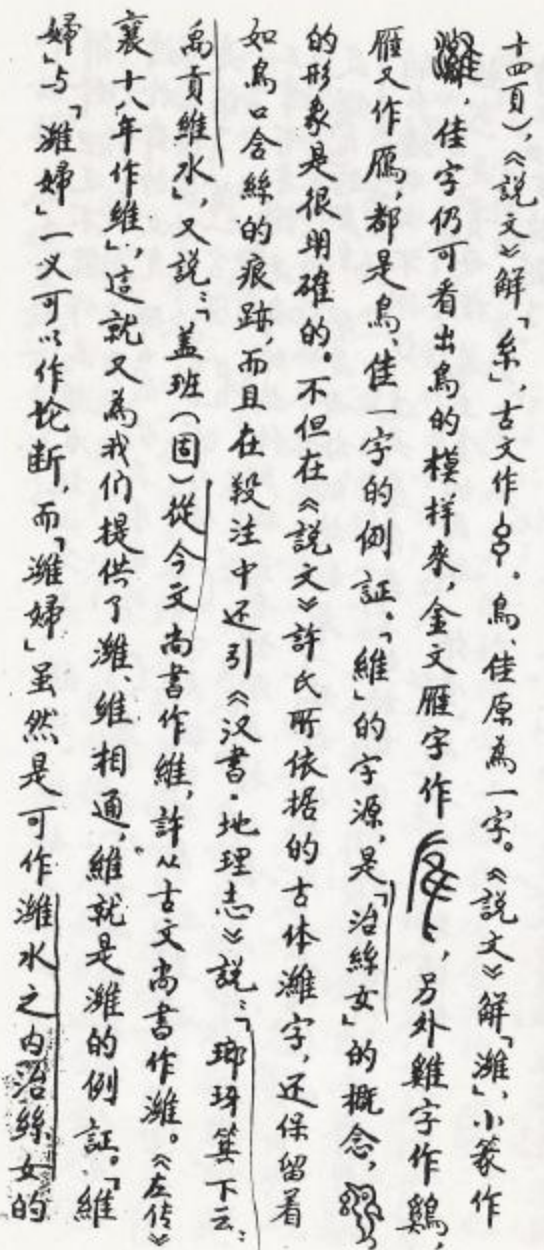 十四頁），《說文》解「糸」，古文作。鳥、隹原為一字。《說文》解「濰」，小篆作
，隹字仍可看出鳥的模样來，金文雁字作，另外雞字作鷄，
雁又作鴈，都是鳥、隹一字的例証。「維」的字源，是「治絲女」的概念，
的形象是很明確的。不但在《說文》許氏所依据的古体濰字，还保留着
如鳥口含絲的痕跡，而且在段注中还引《汉書·地理志》說：「瑯玡箕下云：
禹貢維水」，又說：「盖班（固）從今文尚書作維，許从古文尚書作濰。《左传》
襄十八年作維」，這就又為我们提供了濰、維相通，維就是濰的例証。「維
婦」与「濰婦」一义可以作论断，而「濰婦」虽然是可作濰水之内治絲女的